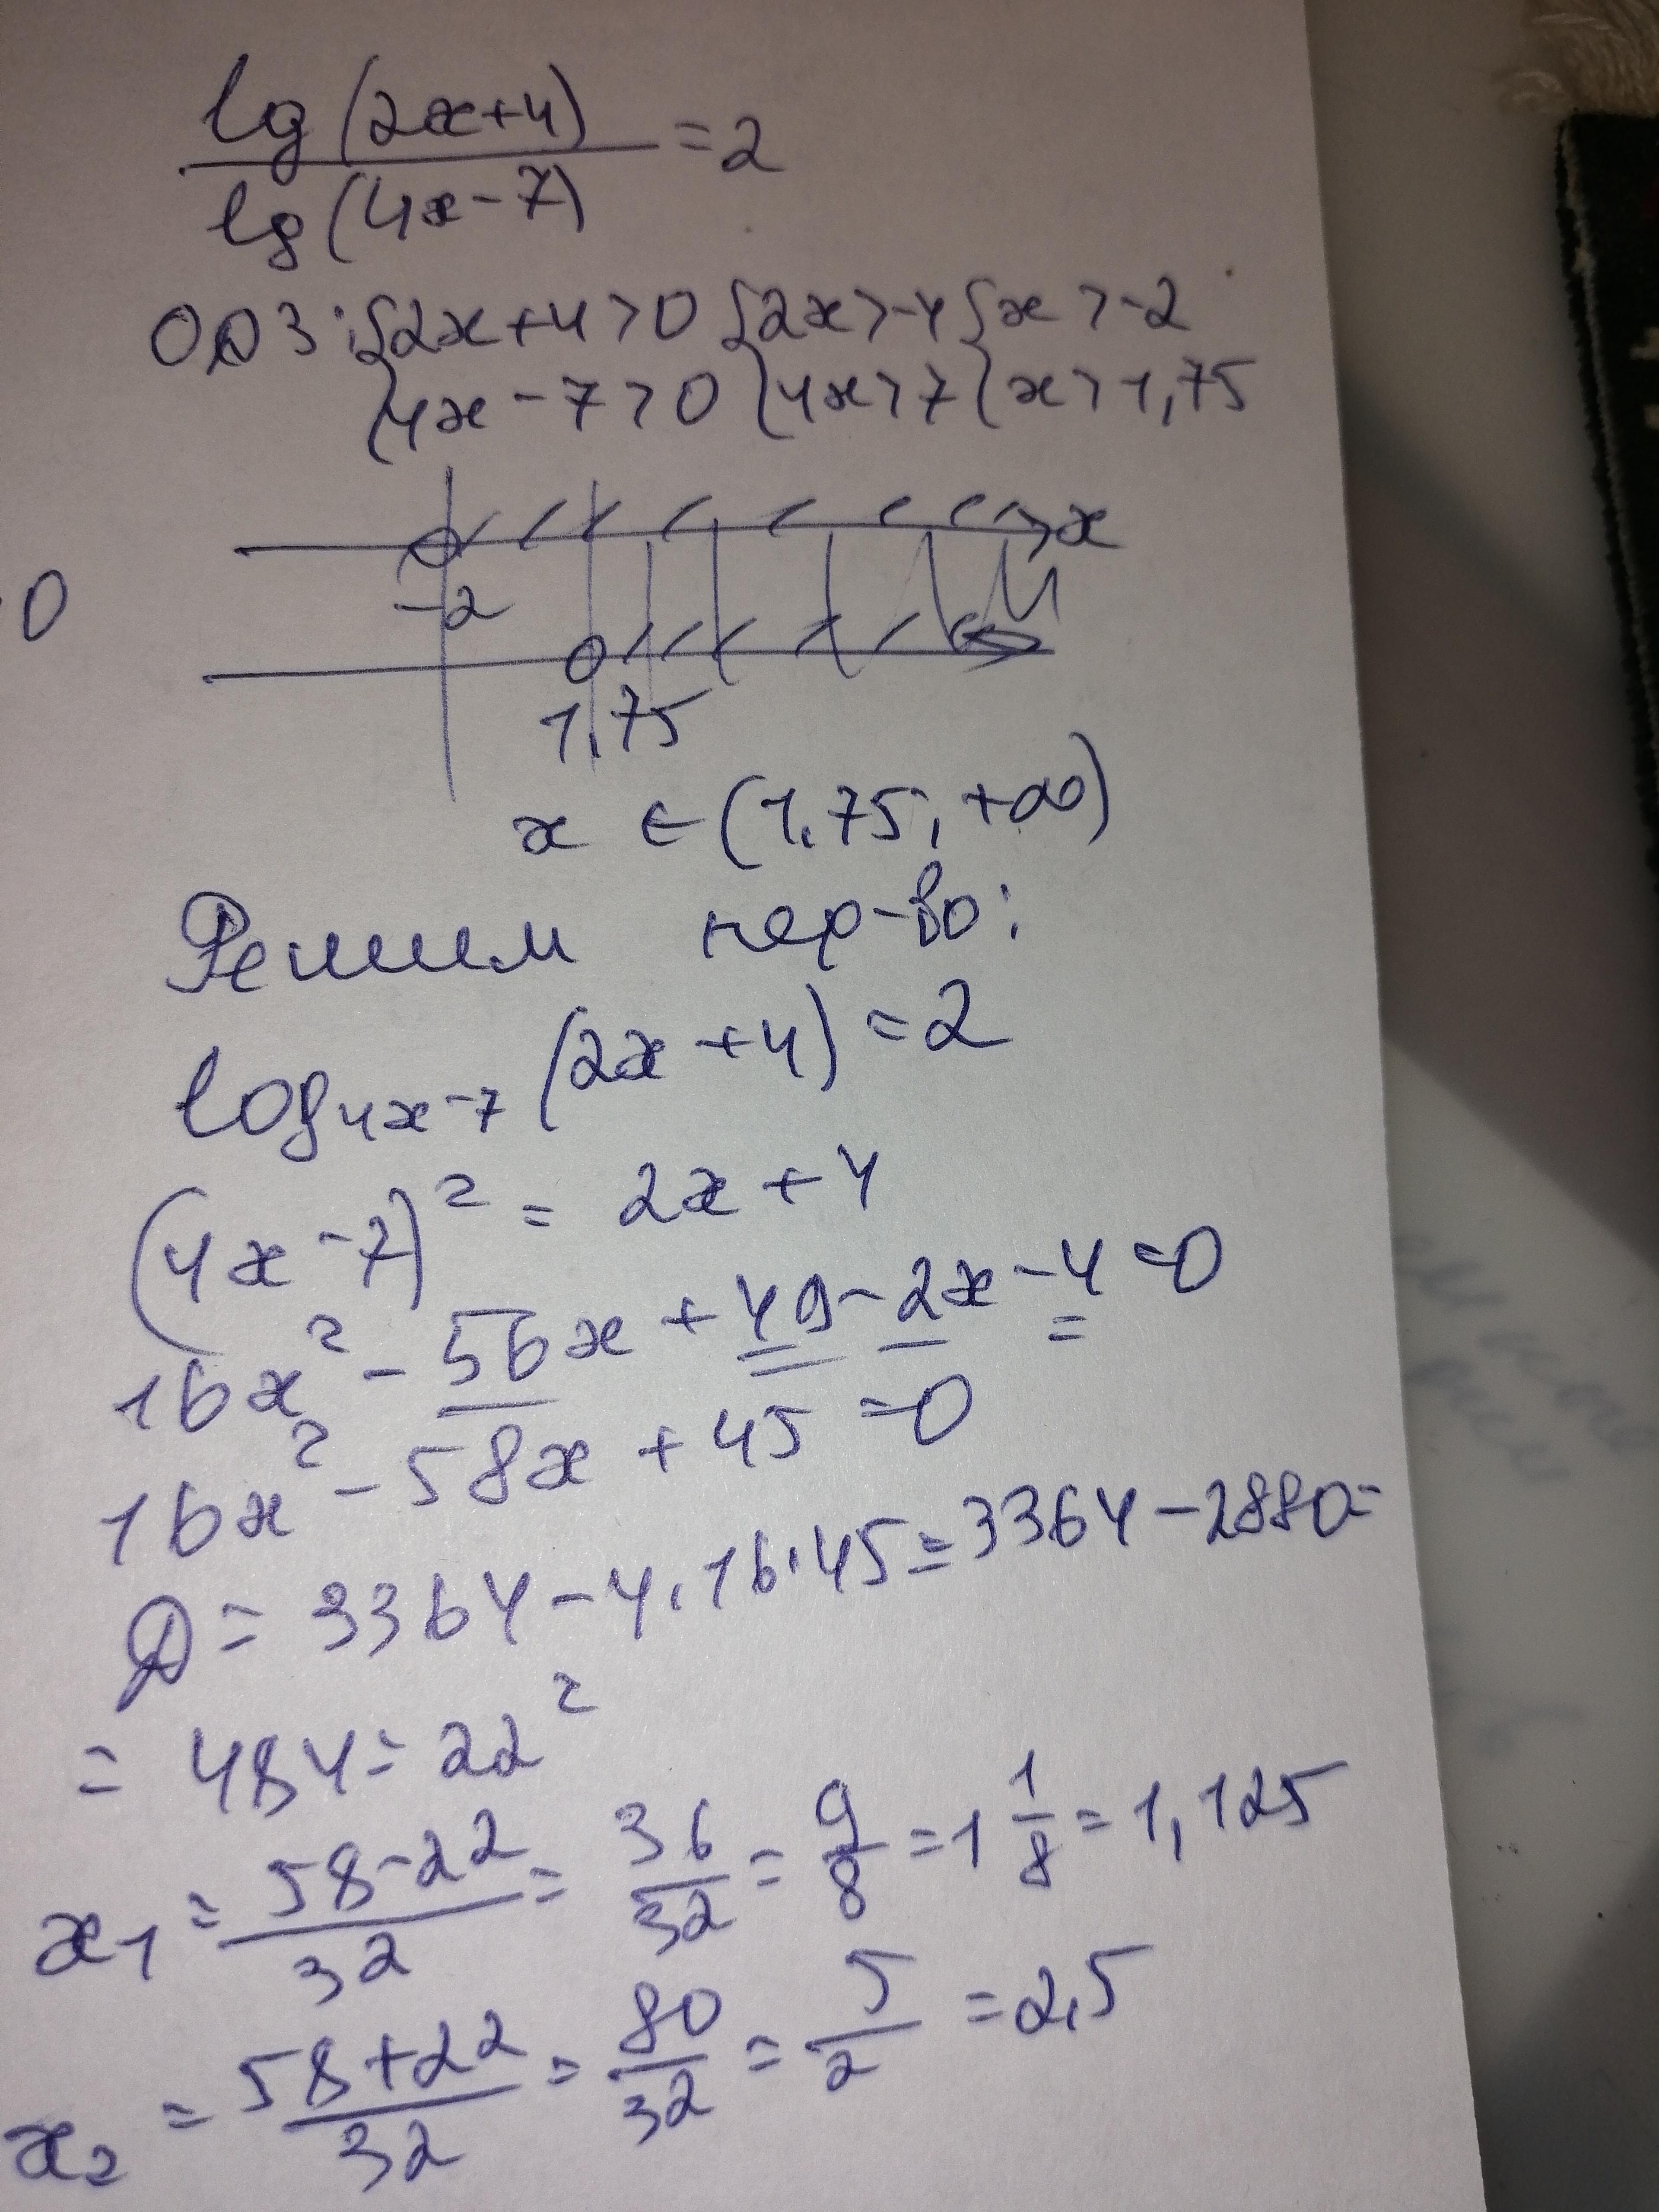 lg(2x+4)
lg(4x-7)
=2
ОДЗ: {2x+4>0 {2x>-4 {x>-2
{4x-7>0 {4x>7 {x>1,75
x
-2
0
1,75
x ∈ (1,75; +∞)
Решим нер-во:
log₄ₓ₋₇(2x+4)=2
(4x-7)²=2x+4
16x²-56x+49-2x-4=0
16x²-58x+45=0
Д=3364-4·16·45=3364-2880=
=484=22²
x₁=58-22/32=36/32=9/8=1 1/8=1,125
x₂=58+22/32=80/32=5/2=2,5